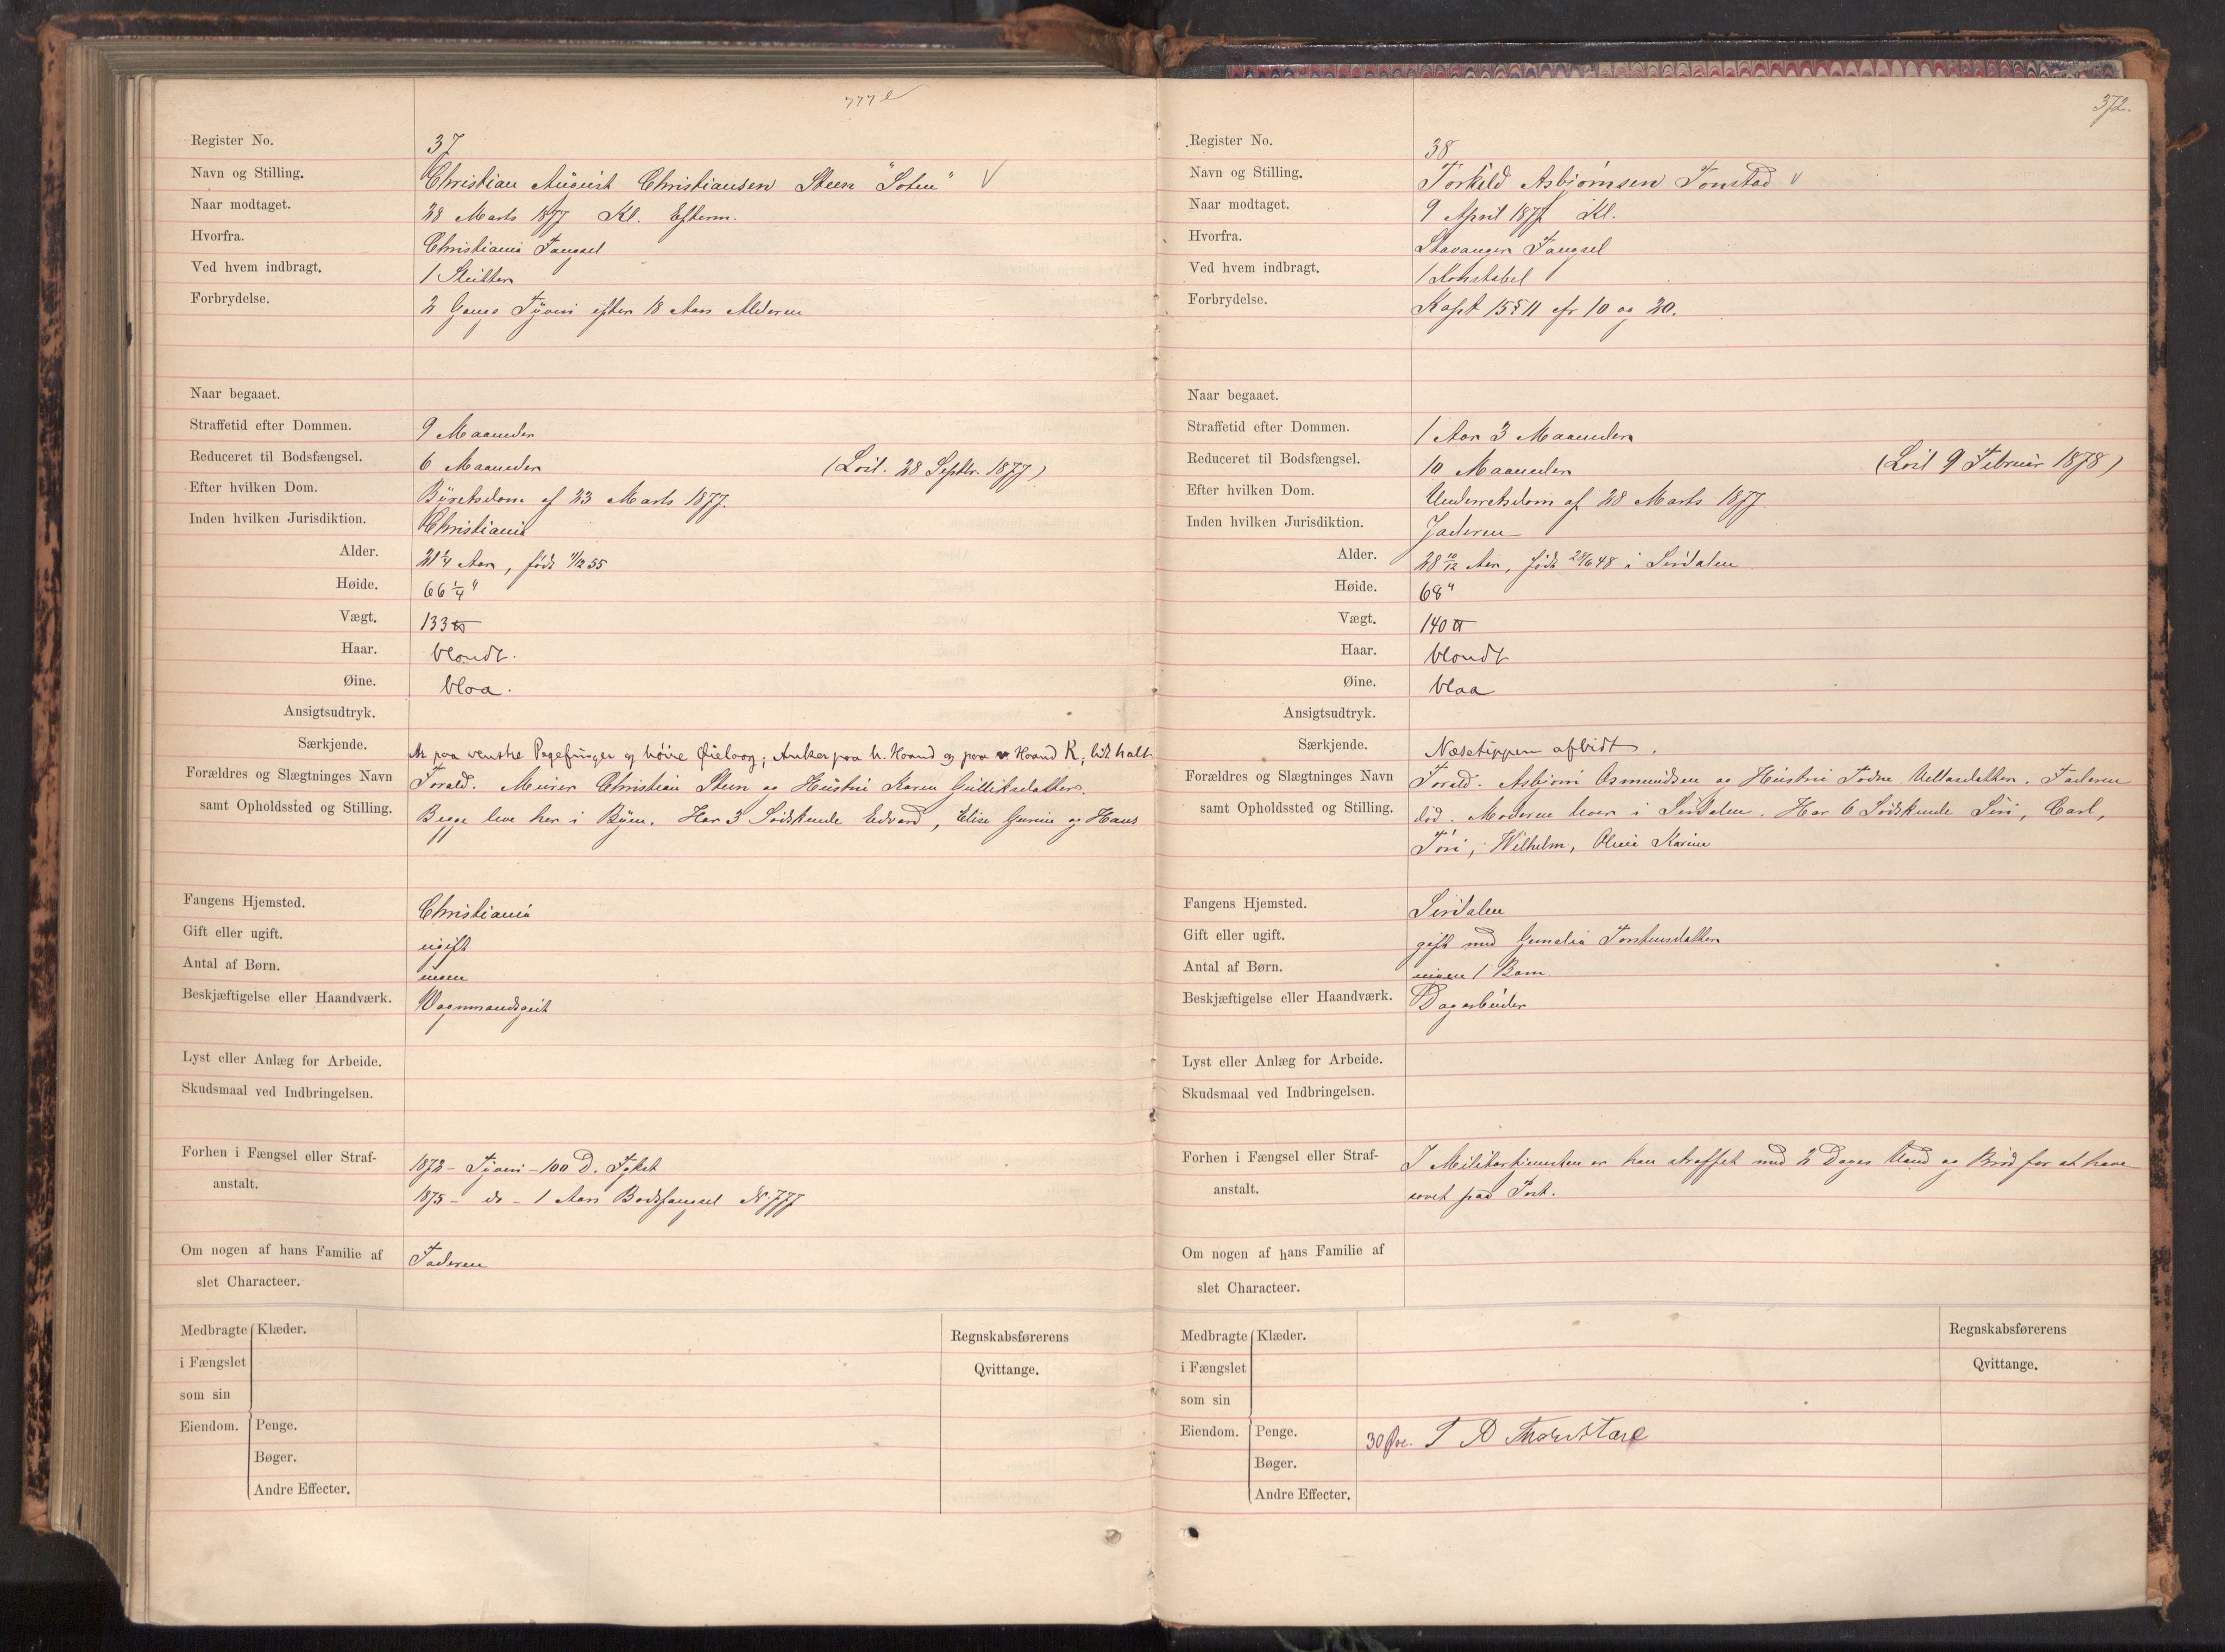 777
Register No. 37
Navn og Stilling. Christian August Christiansen Steen "Soten" V
Naar modtaget. 28 Marts 1877 Kl. Efterm.
Hvorfra. Christiania Fængsel
Ved hvem indbragt. 1 Slutter
Forbrydelse. 2 Gange Tyveri efter 18 Aars Alderen
Naar begaaet.
Straffetid efter Dommen. 9 Maaneder
Reduceret til Bodsfængsel. 6 Maaneder (Løsl. 28 Septbr. 1877)
Efter hvilken Dom. Byretsdom af 23 Marts 1877.
Inden hvilken Jurisdiktion. Christiania
Alder. 21 1/4 Aar, født 11/12 55
Høide. 66 1/4 "
Vægt. 133 ℔
Haar. blondt.
Øine. blaa.
Ansigtsudtryk.
Særkjende. Ar paa venstre Pegefinger og høire Øielaag; Anker paa h. Haand og paa v Haand K; lidt halt
Forældres og Slægtninges Navn Foræld. Murer Christian Steen og Hustru Karen Gulliksdatter.
samt Opholdssted og Stilling. Begge leve her i Byen. Har 3 Sødskende Edvard, Elise Gurine og Hans
Fangens Hjemsted. Christiania
Gift eller ugift. ugift
Antal af Børn. ingen
Beskjæftigelse eller Haandværk. Vognmandsgut
Lyst eller Anlæg for Arbeide.
Skudsmaal ved Indbringelsen.
Forhen i Fængsel eller Straf- 1872 - Tyveri - 100 D. Tgkst
anstalt. 1875 - do - 1 Aars Bodsfængsel N. 777
Om nogen af hans Familie af Faderen
slet Characteer.
Medbragte Klæder. Regnskabsførerens
i Fængslet Qvittange.
som sin
Eiendom. Penge.
Bøger.
Andre Effecter.
372.
Register No. 38
Navn og Stilling. Torkild Asbjørnsen Tonstad V
Naar modtaget. 9 April 1877 Kl.
Hvorfra. Stavanger Fængsel
Ved hvem indbragt. 1 Konstabel
Forbrydelse. Kapt 15 § 11 cfr 10 og 20.
Naar begaaet.
Straffetid efter Dommen. 1 Aar 3 Maaneder
Reduceret til Bodsfængsel. 10 Maaneder (Løsl 9 Februar 1878)
Efter hvilken Dom. Underretsdom af 28 Marts 1877
Inden hvilken Jurisdiktion. Jæderen
Alder. 28 10/12 Aar, født 28/6 48 i Sirdalen
Høide. 68"
Vægt. 140 ℔
Haar. blondt
Øine. blaa
Ansigtsudtryk.
Særkjende. Næsetippen afbidt.
Forældres og Slægtninges Navn Foræld. Asbjørn Osmundsen og Hustru Todne datter. Faderen
samt Opholdssted og Stilling. død. Moderen lever i Sirdalen. Har 6 Sødskende Siri, Carl,
Tori, Wilhelm, Karine
Fangens Hjemsted. Sirdalen
Gift eller ugift. gift med Gunelia Torstensdatter
Antal af Børn. ingen 1 Barn
Beskjæftigelse eller Haandværk. Dagarbeider
Lyst eller Anlæg for Arbeide.
Skudsmaal ved Indbringelsen.
Forhen i Fængsel eller Straf- I Militærtjenesten er han straffet med 2 Dages Vand og Brød for at have
anstalt. sovet paa Post.
Om nogen af hans Familie af
slet Characteer.
Medbragte Klæder. Regnskabsførerens
i Fængslet Qvittange.
som sin
Eiendom. Penge. 30 Øre. T A
Bøger.
Andre Effecter.